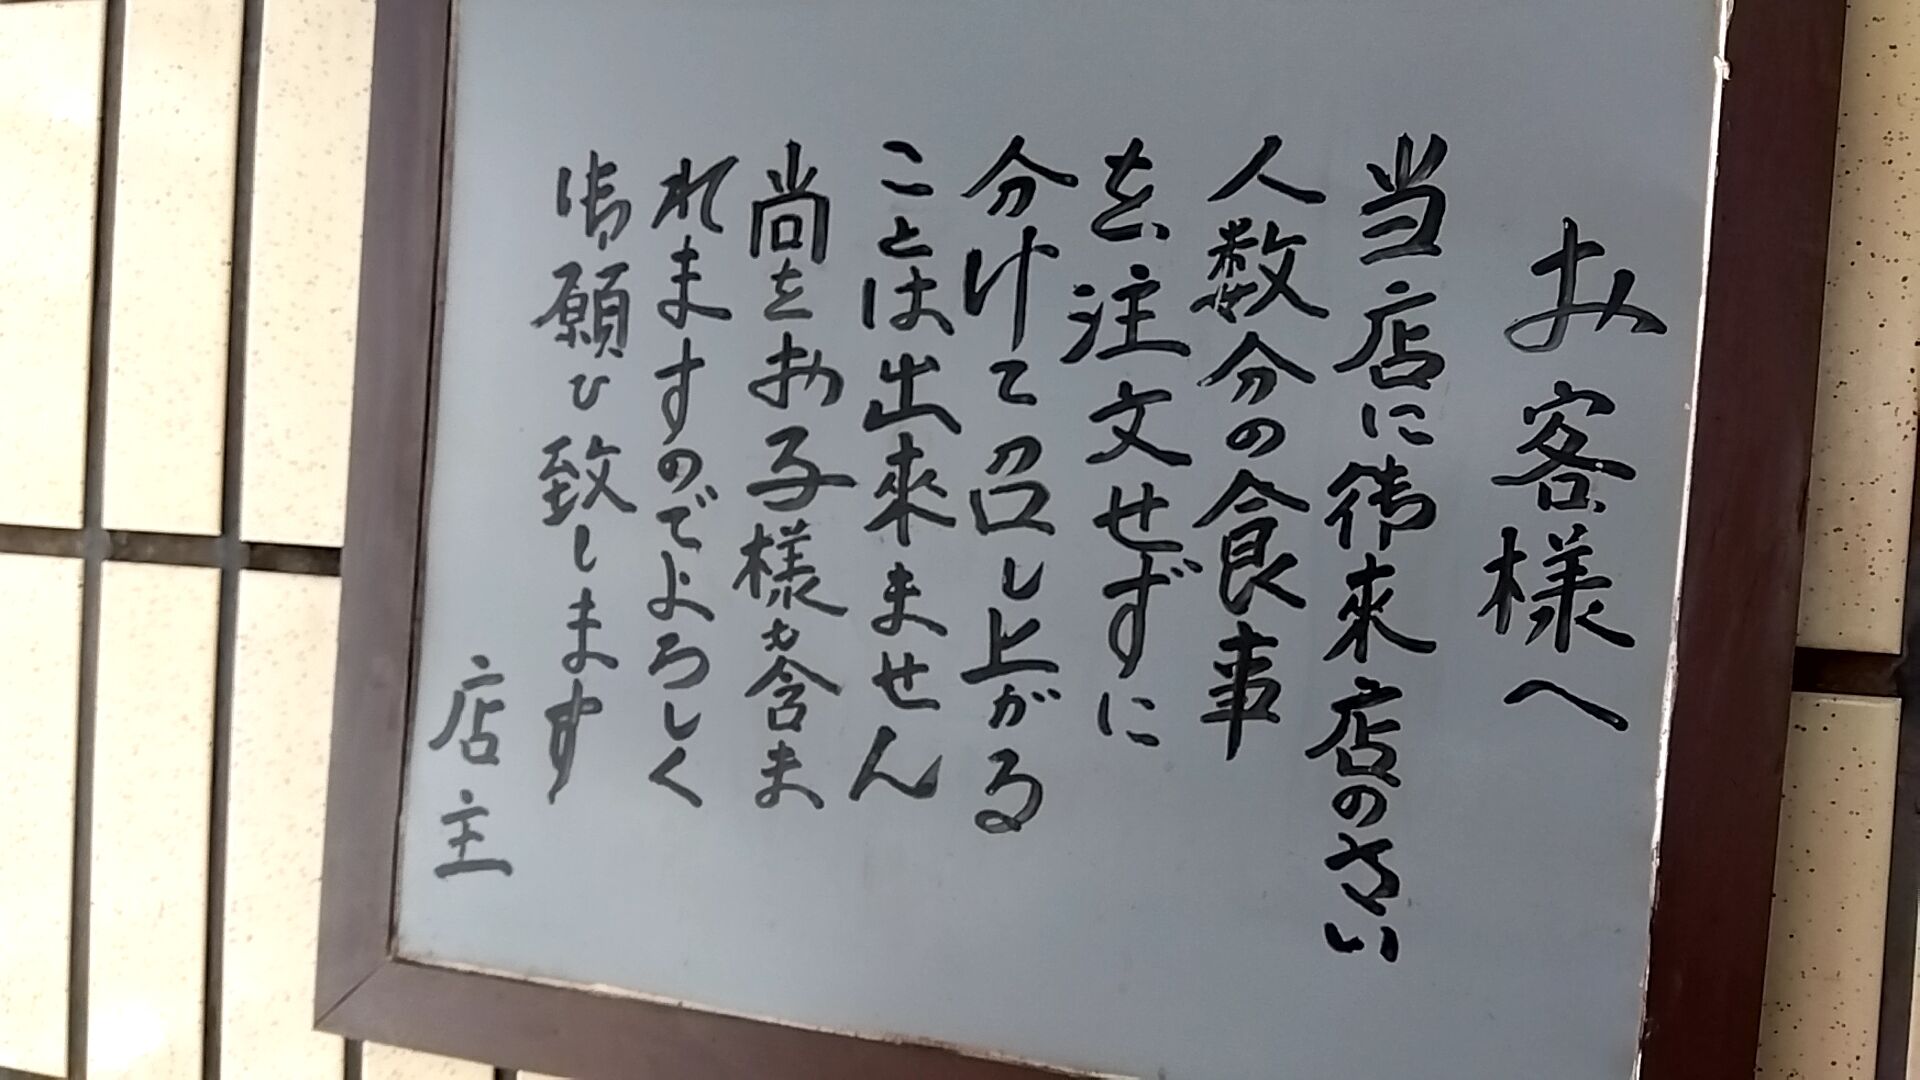 お客様へ
当店に御来店のさい
人数分の食事
を注文せずに
分けて召し上がる
ことは出来ません
尚をお子様も含ま
れますのでよろしく
御願ひ致します
店主